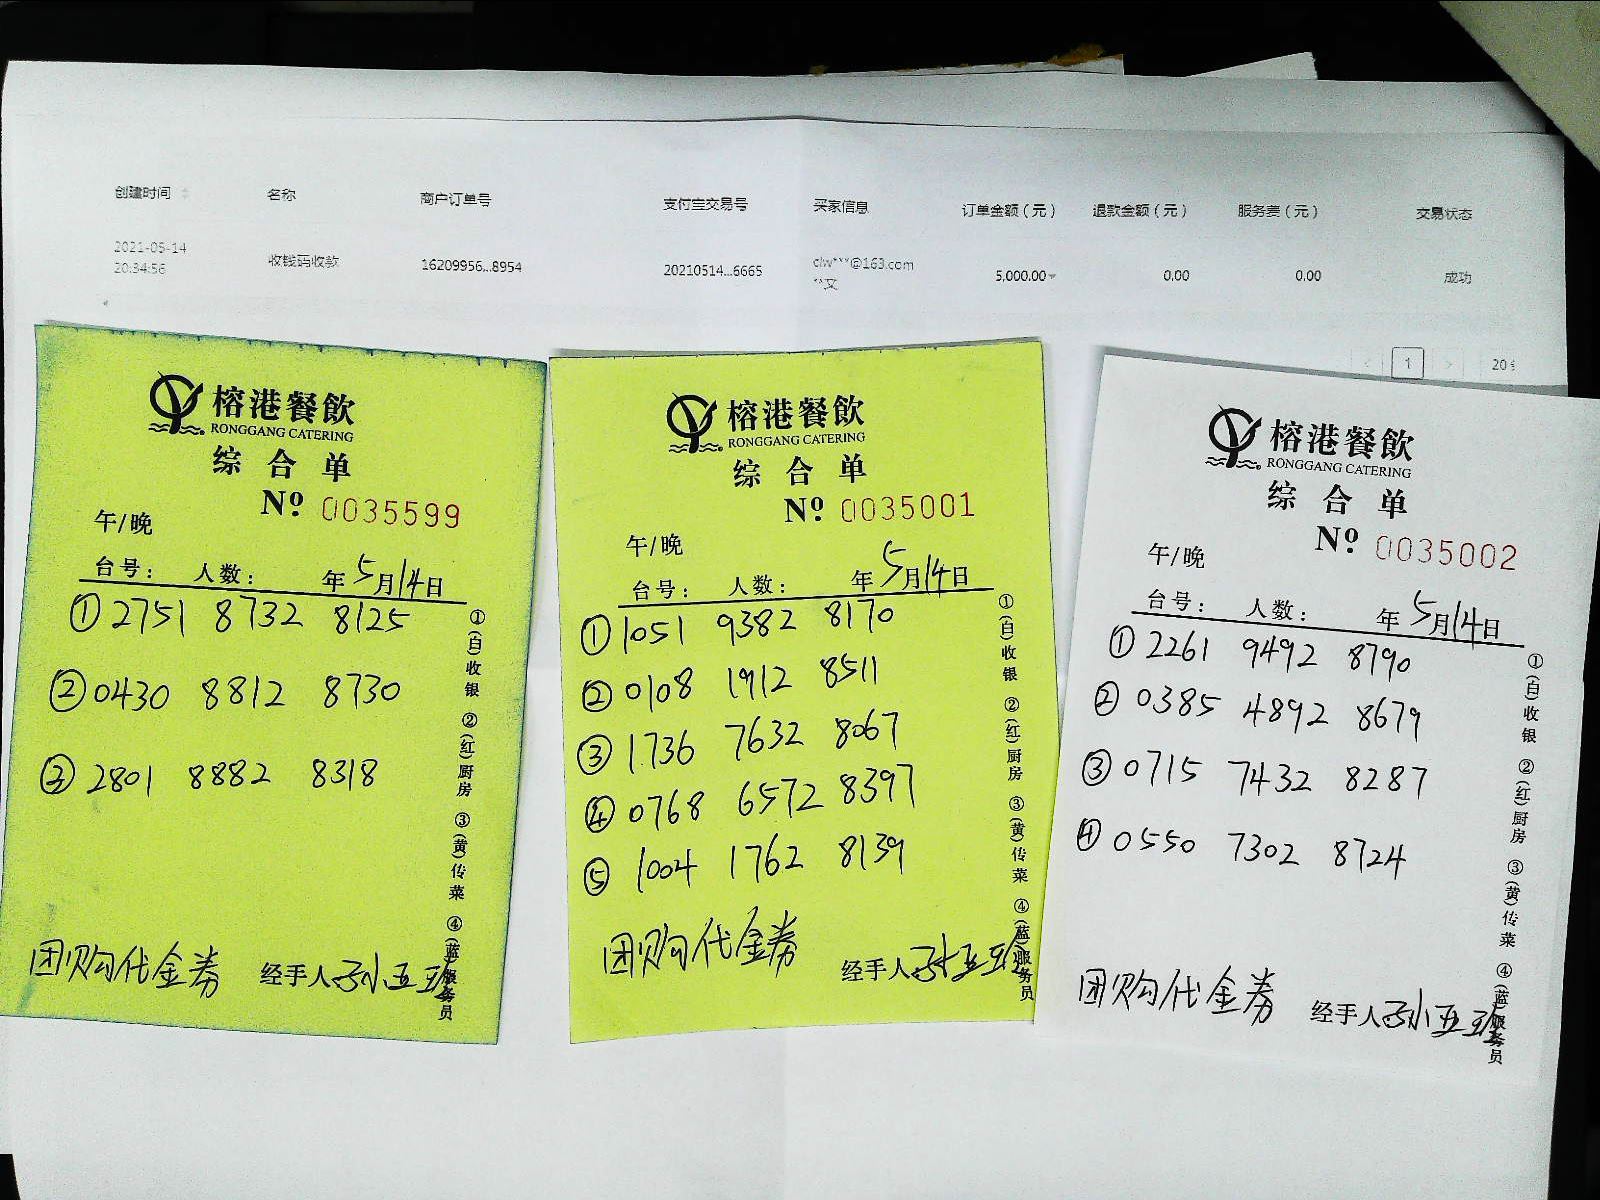 创建时间 名称 商户订单号 支付宝交易号 买家信息 订单金额（元） 退款金额（元） 服务费（元） 交易状态
2021-05-14
20:34:56 收钱码收款 16209956...8954 20210514...6665 clw***@163.com 5,000.00 0.00 0.00 成功
**文
< 1 > 20
榕港餐飲
RONGGANG CATERING
综合单
Nº 0035599
午/晚
台号： 人数： 年5月14日
①2751 8732 8125
②0430 8812 8730
③2801 8882 8318
团购代金券 经手人孙亚珍
①(白)收银 ②(红)厨房 ③(黄)传菜 ④(蓝)服务员
榕港餐飲
RONGGANG CATERING
综合单
Nº 0035001
午/晚
台号： 人数： 年5月14日
①1051 9382 8170
②0108 1912 8511
③1736 7632 8067
④0768 6572 8397
⑤1004 1762 8139
团购代金券 经手人孙亚珍
①(白)收银 ②(红)厨房 ③(黄)传菜 ④(蓝)服务员
榕港餐飲
RONGGANG CATERING
综合单
Nº 0035002
午/晚
台号： 人数： 年5月14日
①2261 9492 8790
②0385 4892 8679
③0715 7432 8287
④0550 7302 8724
团购代金券 经手人孙亚珍
①(白)收银 ②(红)厨房 ③(黄)传菜 ④(蓝)服务员